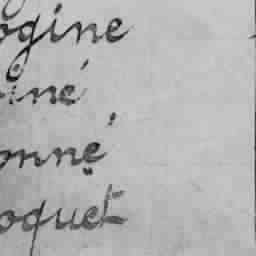 ogine
iné
onné
oquet